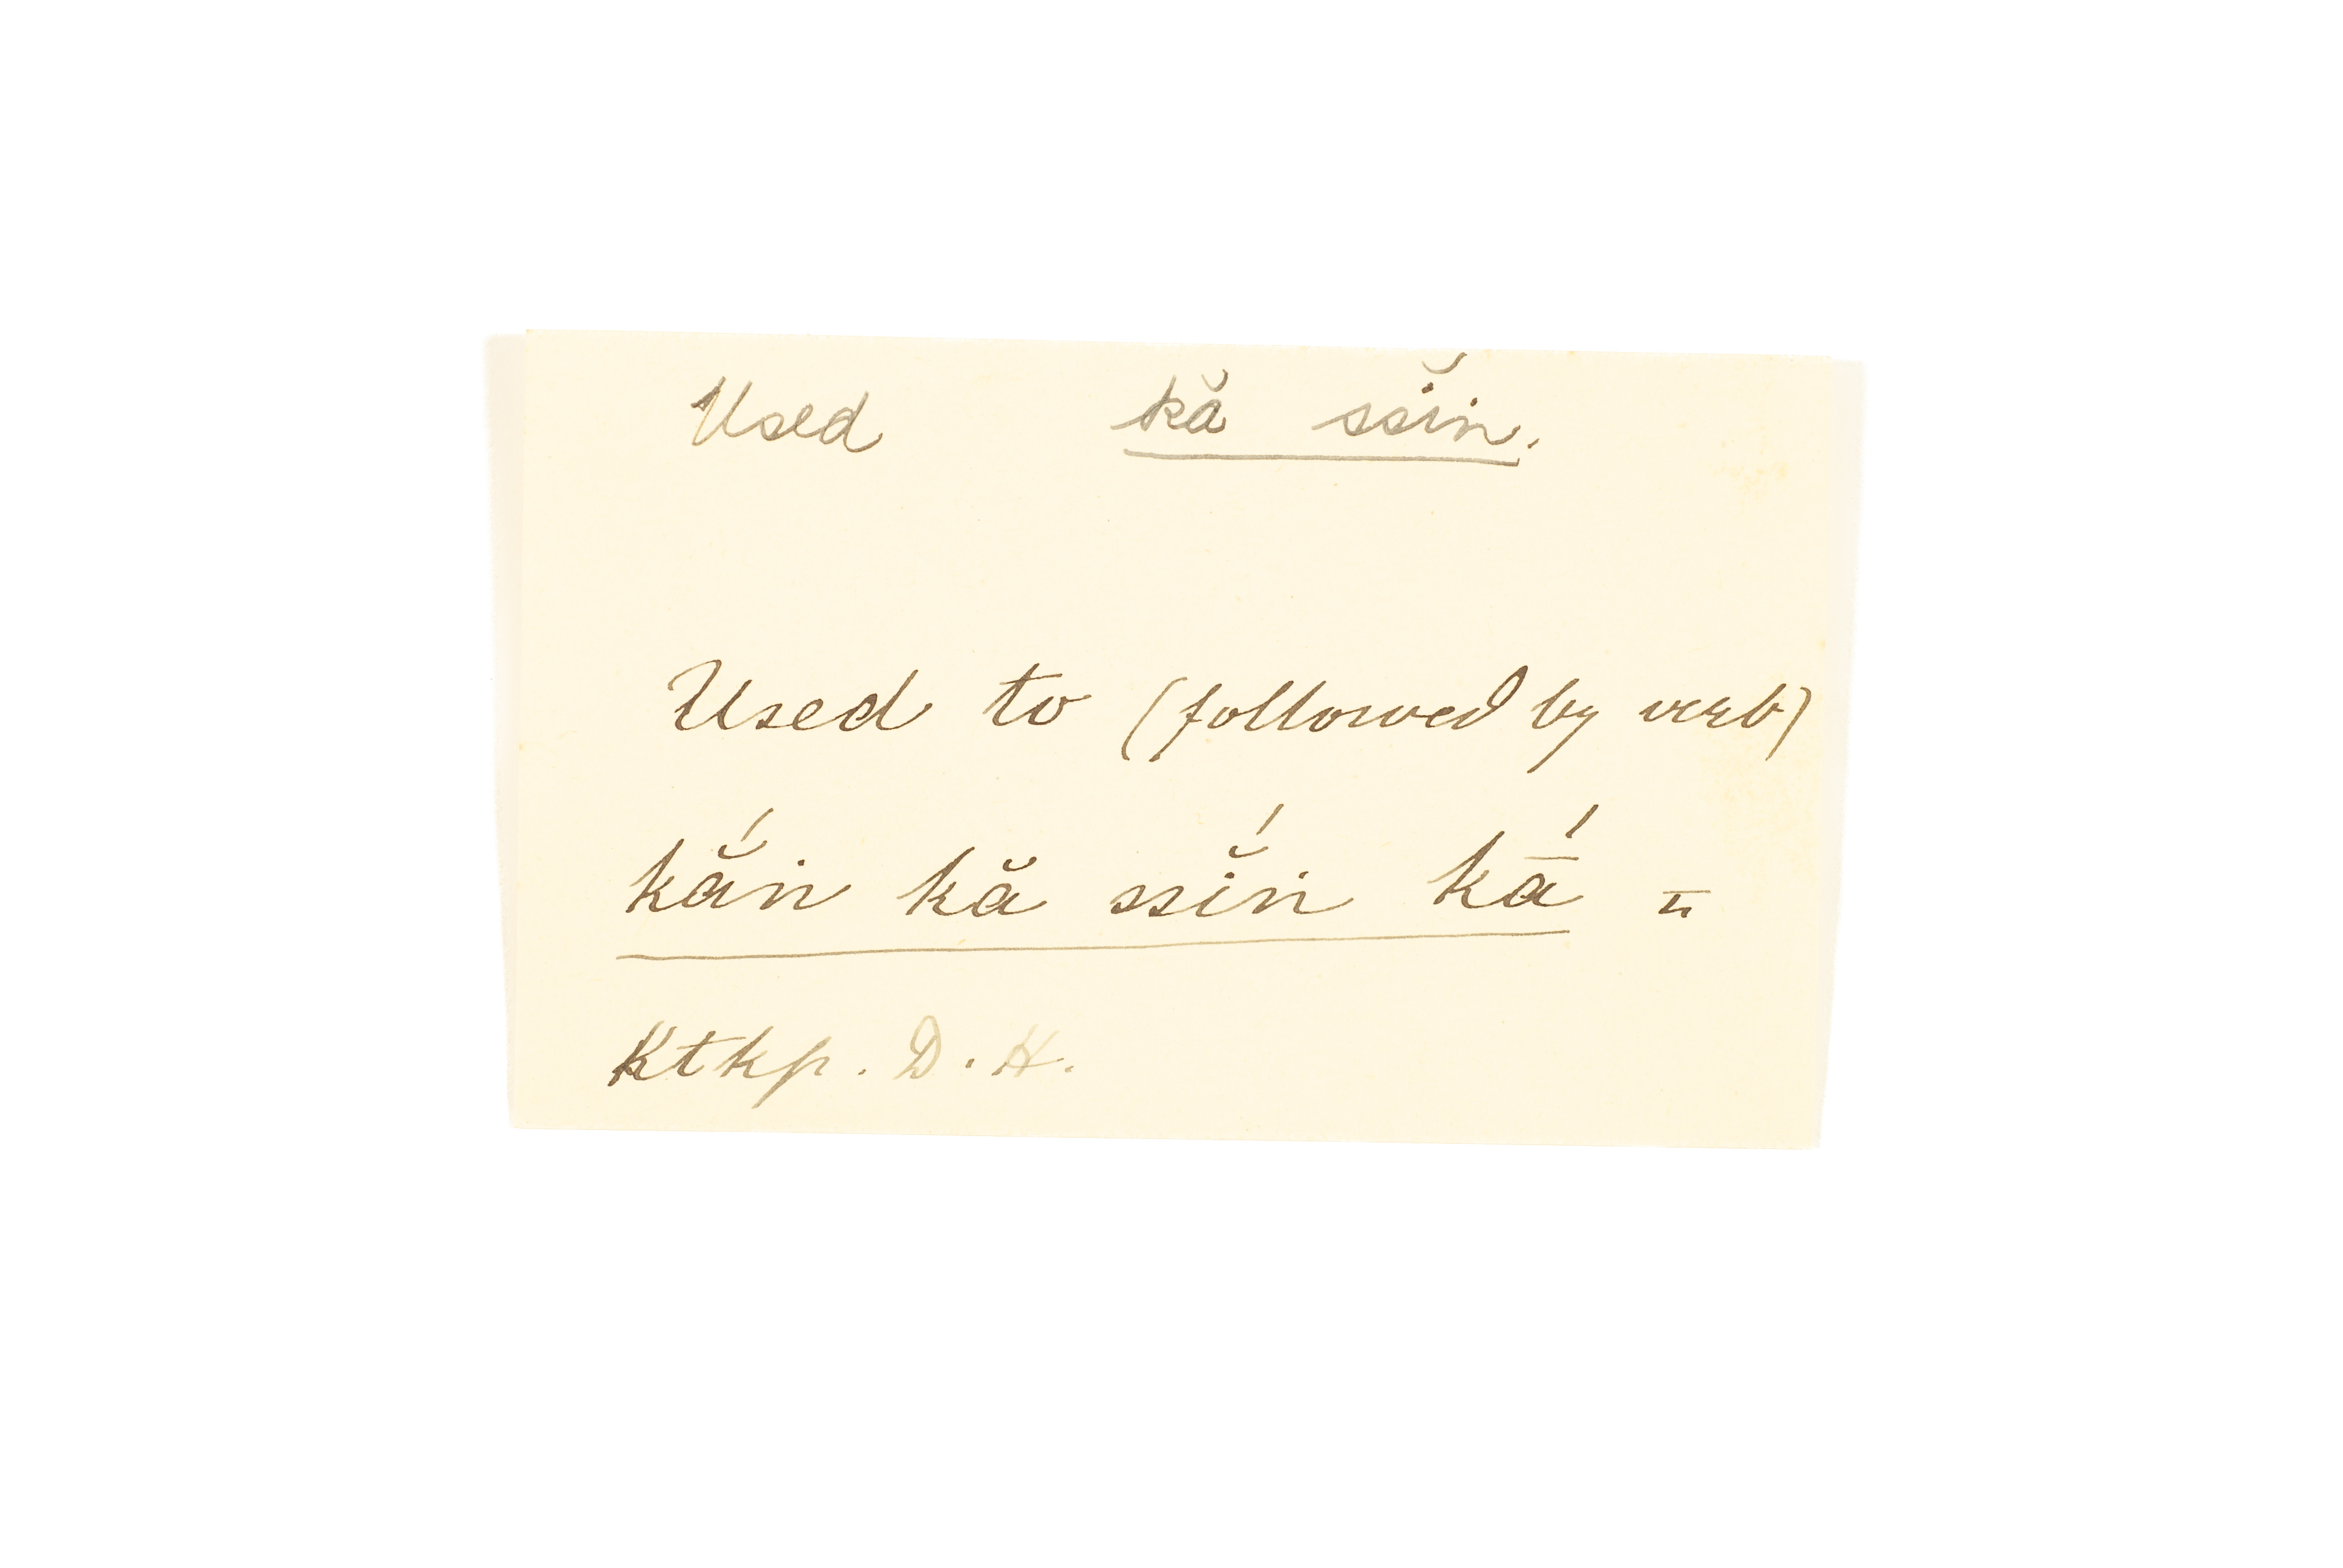 Used kă ssĭn.
Used to (followed by verb)
kắn kă ssĭ́n kā́ =
Ktkp. D. H.